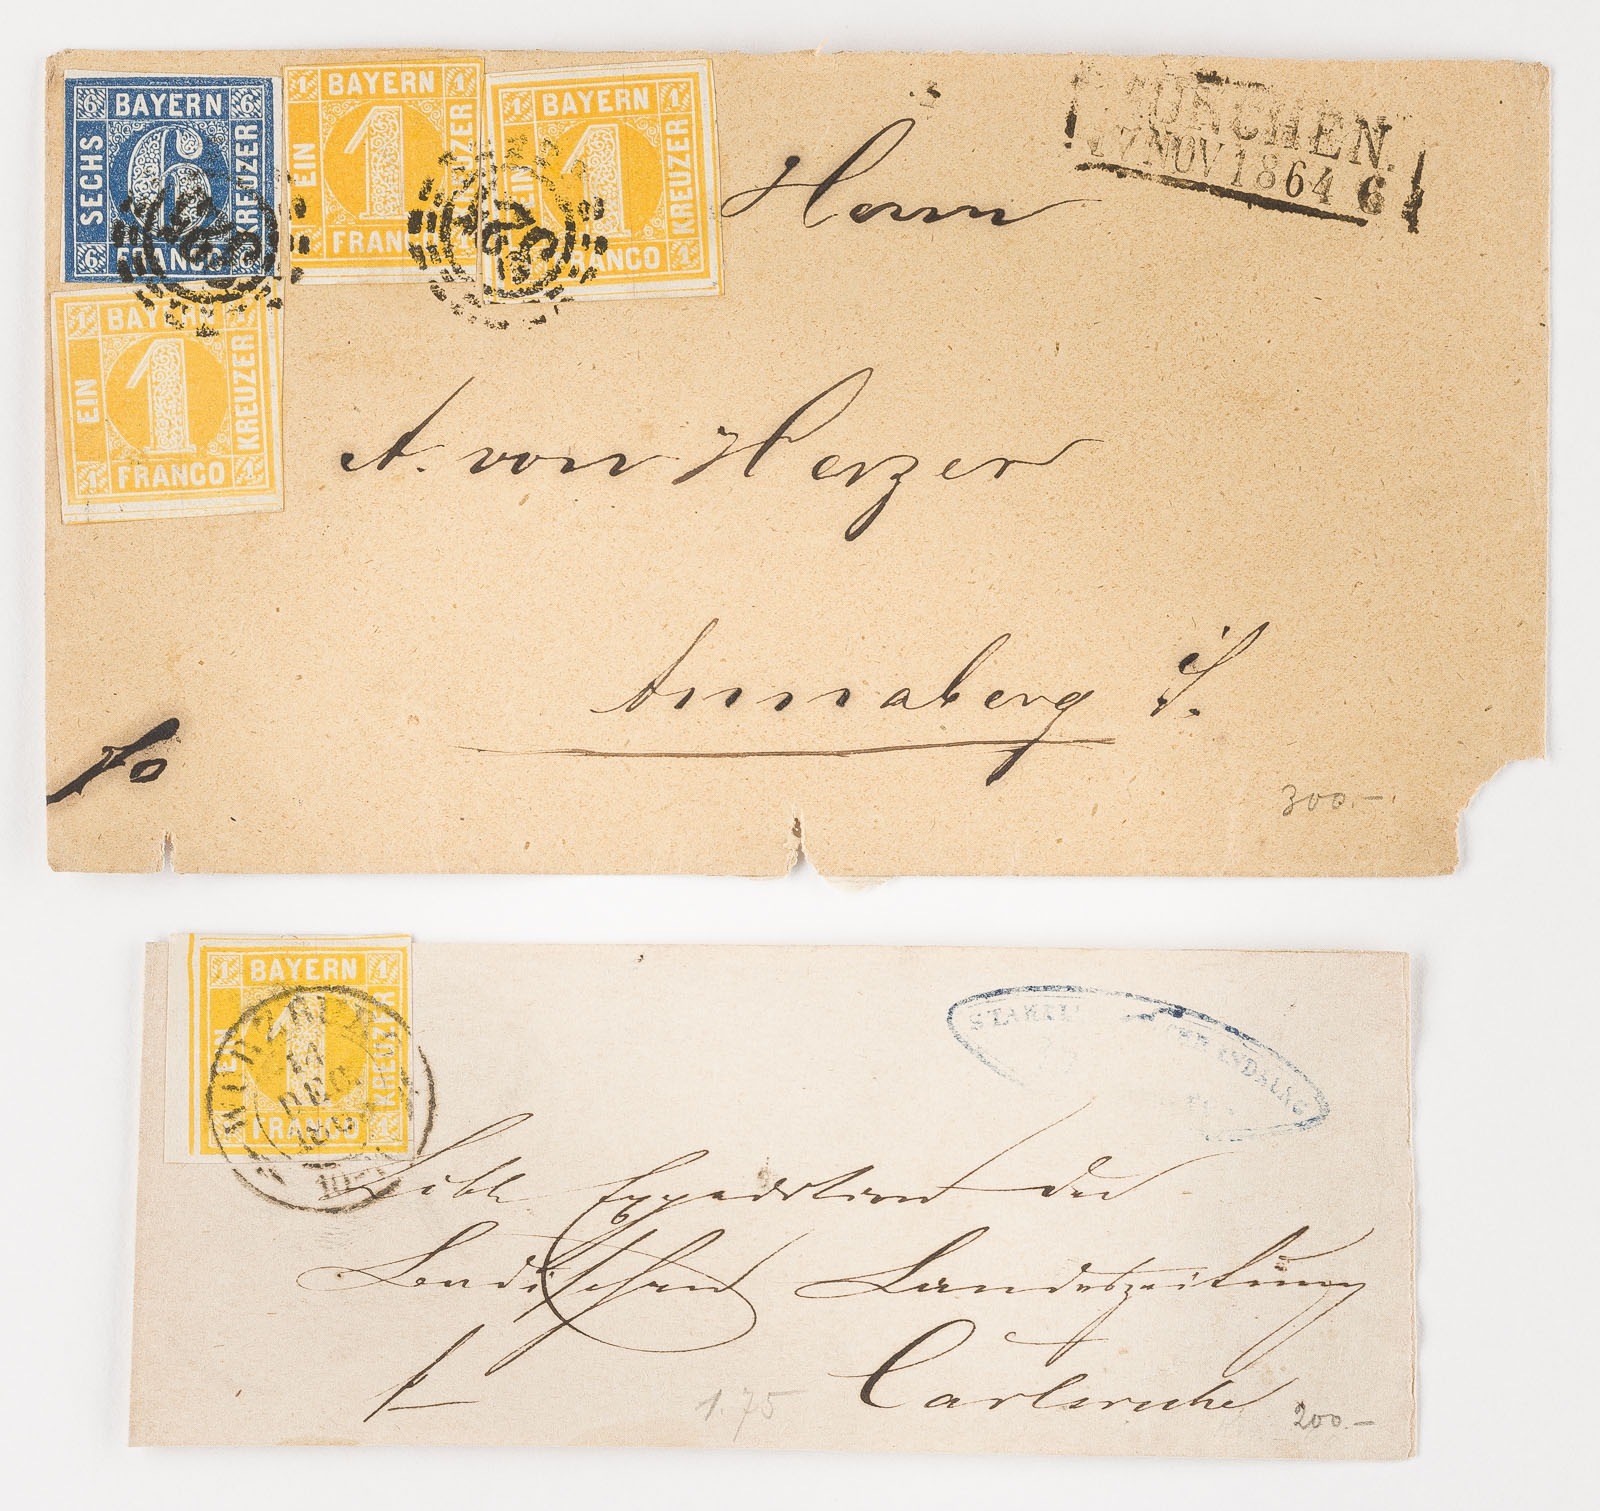 6 BAYERN 6
SECHS
6
KREUZER
6 FRANCO
1 BAYERN 1
EIN
1
KREUZER
FRANCO 1
1 BAYERN 1
EIN
1
KREUZER
FRANCO 1
1 BAYERN 1
EIN
1
KREUZER
1 FRANCO 1
325
325
MÜNCHEN.
17 NOV 1864 6
Herrn
A. von Herzer
Annaberg i/S.
fo
300.-
1 BAYERN 1
EIN
1
KREUZER
FRANCO 1
WÜRZBURG
DEC.
Löbl. Expedition der
Badischen Landeszeitung
Carlsruhe
1.75
200.-